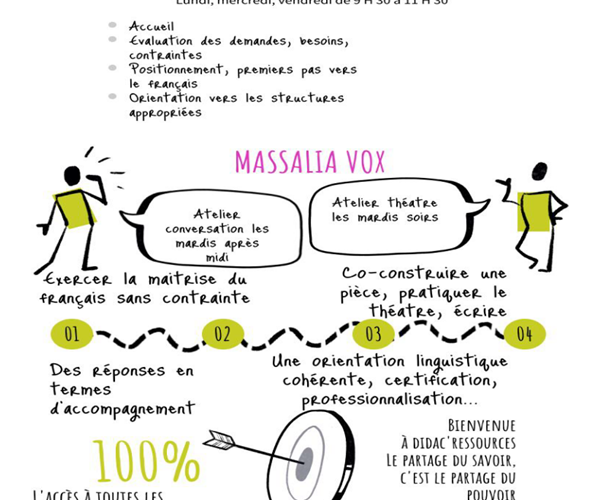 Lundi, mercredi, vendredi de 9 H 30 à 11 H 30
Accueil
Evaluation des demandes, besoins,
contraintes
Positionnement, premiers pas vers
le français
Orientation vers les structures
appropriées
MASSALIA VOX
Atelier
conversation les
mardis après
midi
Atelier théatre
les mardis soirs
Exercer la maitrise du
français sans contrainte
Co-construire une
pièce, pratiquer le
théatre, écrire
01
02
03
04
Des réponses en
termes
d'accompagnement
Une orientation linguistique
cohérente, certification,
professionnalisation...
100%
L'ACCÈS À TOUTES LES
BIENVENUE
À DIDAC'RESSOURCES
LE PARTAGE DU SAVOIR,
C'EST LE PARTAGE DU
POUVOIR